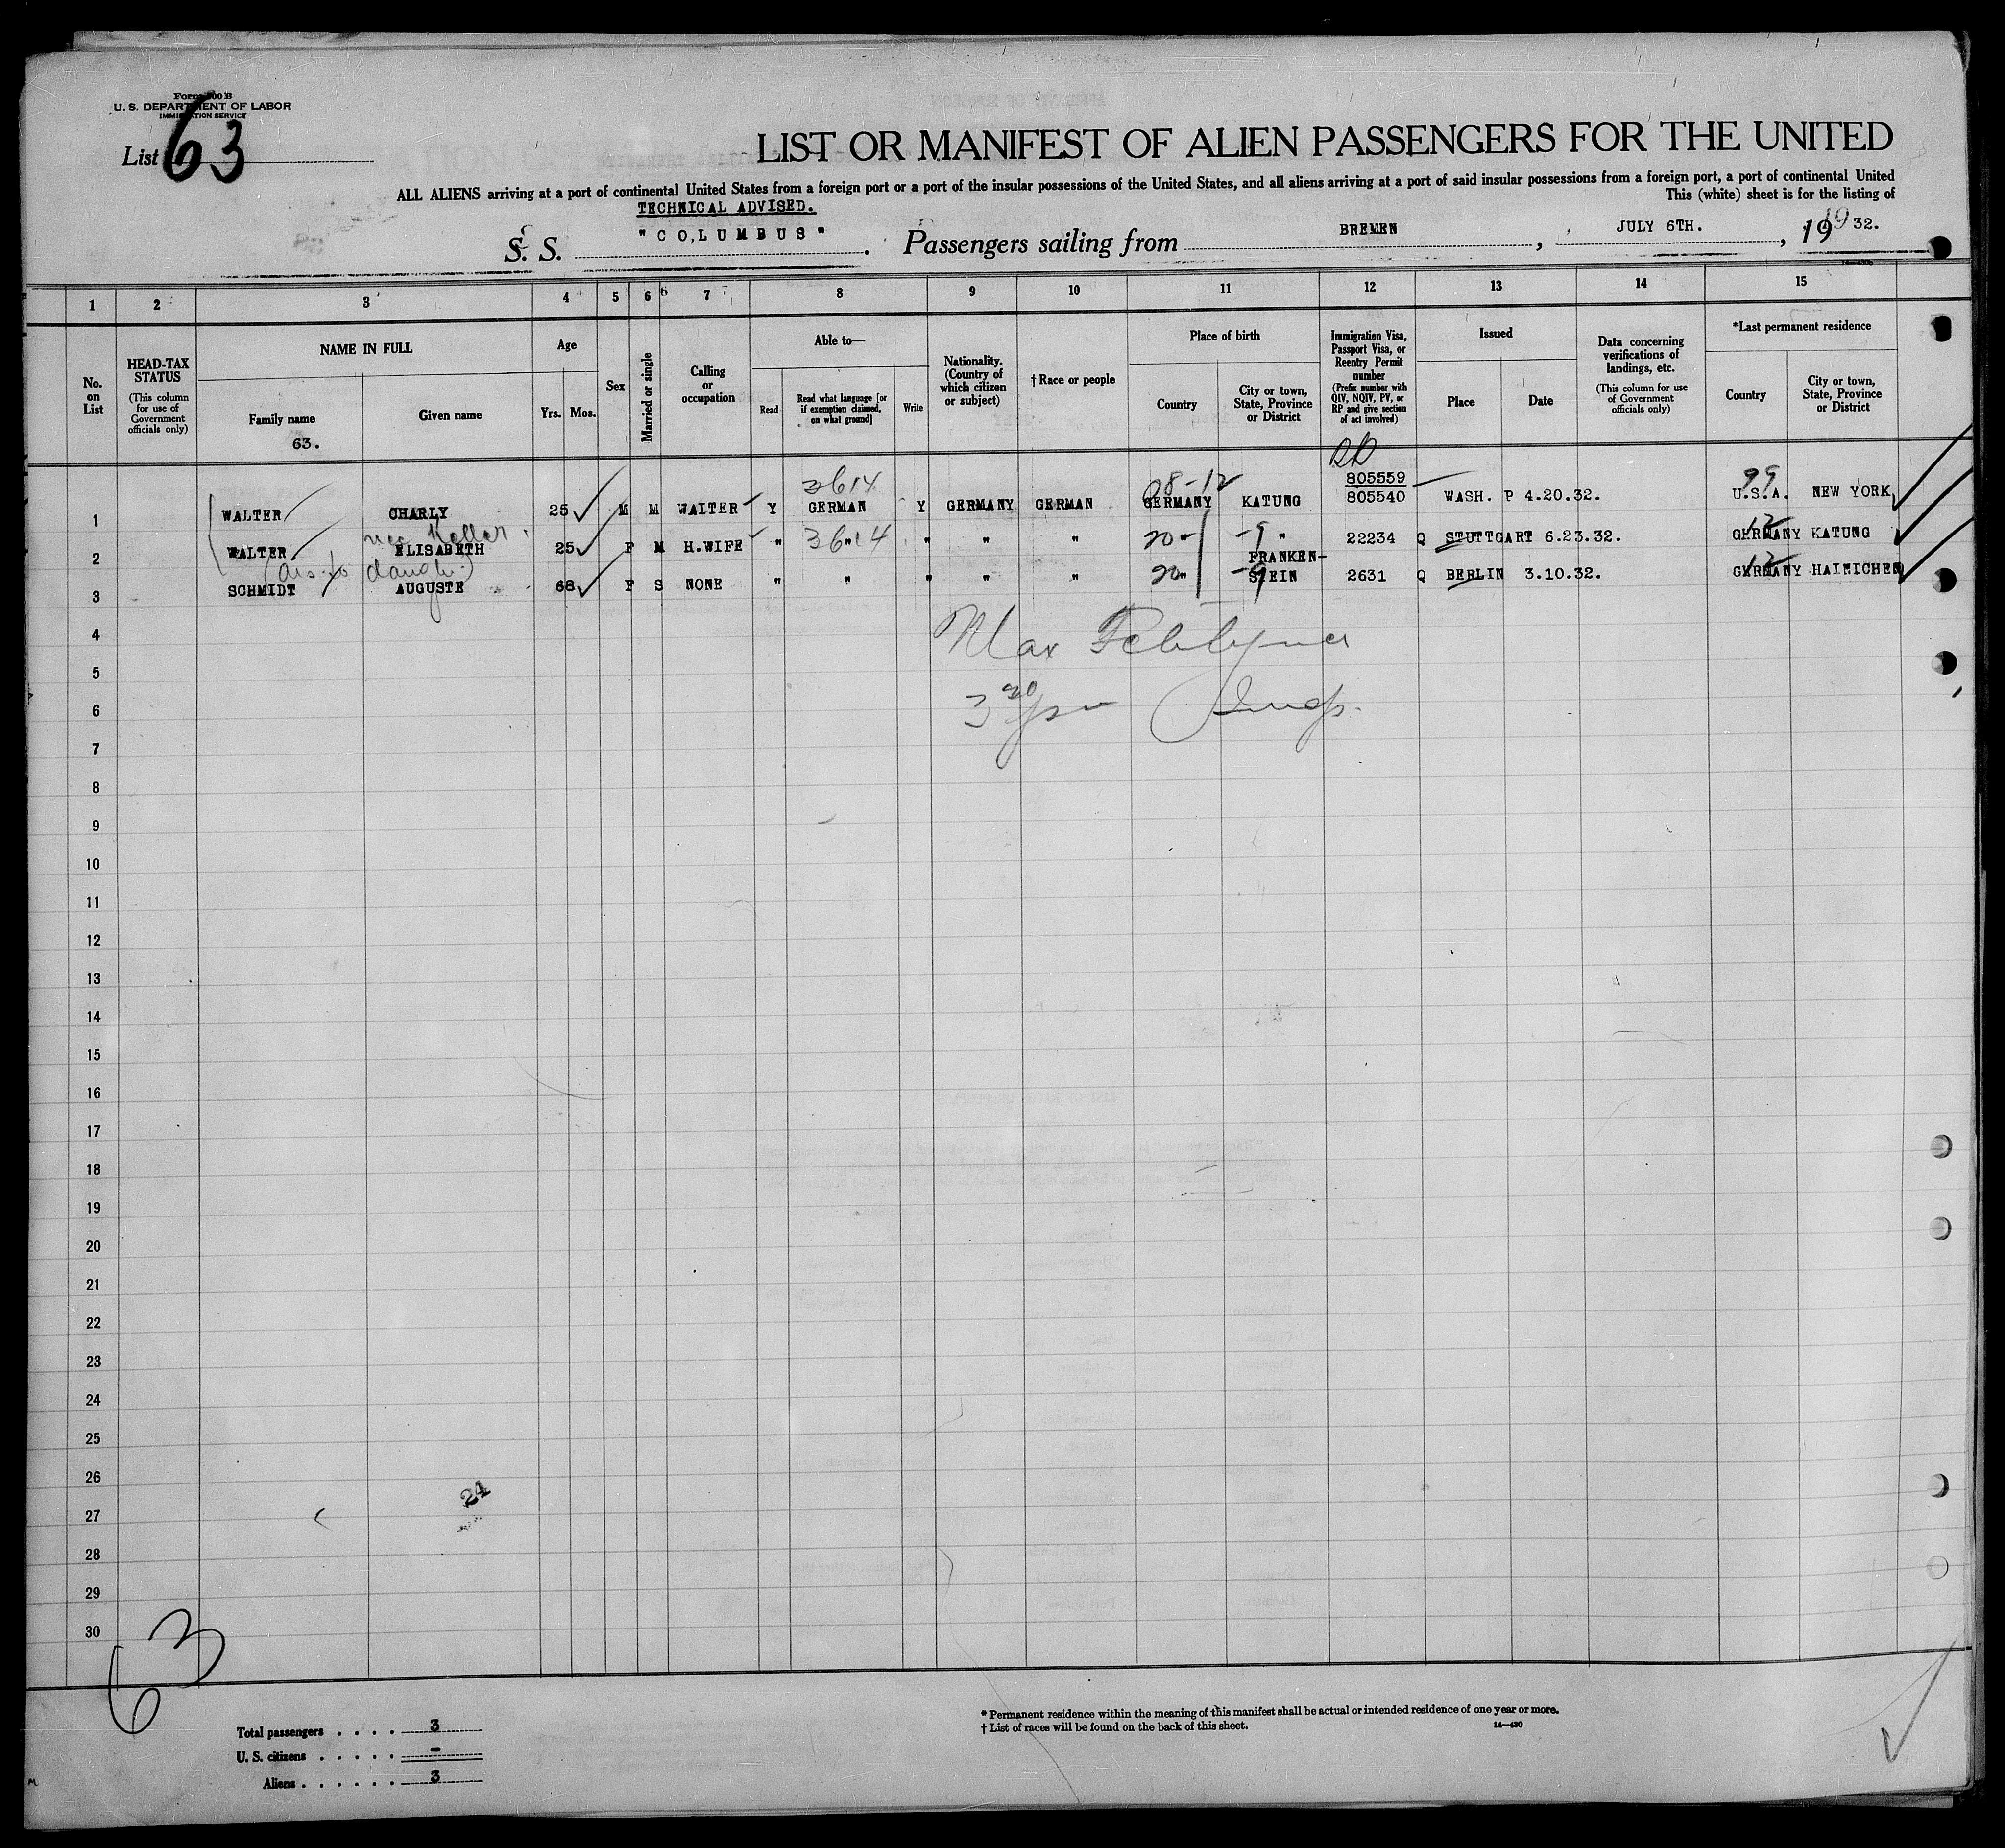 Form 500 B
U. S. DEPARTMENT OF LABOR
IMMIGRATION SERVICE
List 63
LIST OR MANIFEST OF ALIEN PASSENGERS FOR THE UNITED
ALL ALIENS arriving at a port of continental United States from a foreign port or a port of the insular possessions of the United States, and all aliens arriving at a port of said insular possessions from a foreign port, a port of continental United
This (white) sheet is for the listing of
TECHNICAL ADVISED.
S. S. "COLUMBUS". Passengers sailing from BREMEN, JULY 6TH., 19 32.
1 2 3 4 5 6 7 8 9 10 11 12 13 14 15
No. on List
HEAD-TAX STATUS
(This column for use of Government officials only)
NAME IN FULL
Family name
Given name
63.
Age
Yrs. Mos.
Sex
Married or single
Calling or occupation
Able to—
Read
Read what language [or if exemption claimed, on what ground]
Write
Nationality. (Country of which citizen or subject)
† Race or people
Place of birth
Country
City or town, State, Province or District
Immigration Visa, Passport Visa, or Reentry Permit number
(Prefix number with QIV, NQIV, PV, or RP and give section of act involved)
Issued
Place
Date
Data concerning verifications of landings, etc.
(This column for use of Government officials only)
*Last permanent residence
Country
City or town, State, Province or District
3614 08-12 805559 99
1 WALTER CHARLY 25 M M WAITER Y GERMAN Y GERMANY GERMAN GERMANY KATUNG 805540 WASH. P 4.20.32. U.S.A. NEW YORK
nee Keller 3614 20 -9 12
2 WALTER ELISABETH 25 F M H.WIFE " " " " " " " 22234 Q STUTTGART 6.23.32. GERMANY KATUNG
20 -9 FRANKEN- 12
3 SCHMIDT AUGUSTE 68 F S NONE " " " " " " STEIN 2631 Q BERLIN 3.10.32. GERMANY HAINICHEN
4
Max
5
6
Insp.
7
8
9
10
11
12
13
14
15
16
17
18
19
20
21
22
23
24
25
26
24
27
28
29
30
63
Total passengers . . . . 3
U. S. citizens . . . . . -
Aliens . . . . . . 3
* Permanent residence within the meaning of this manifest shall be actual or intended residence of one year or more.
† List of races will be found on the back of this sheet.
14—430